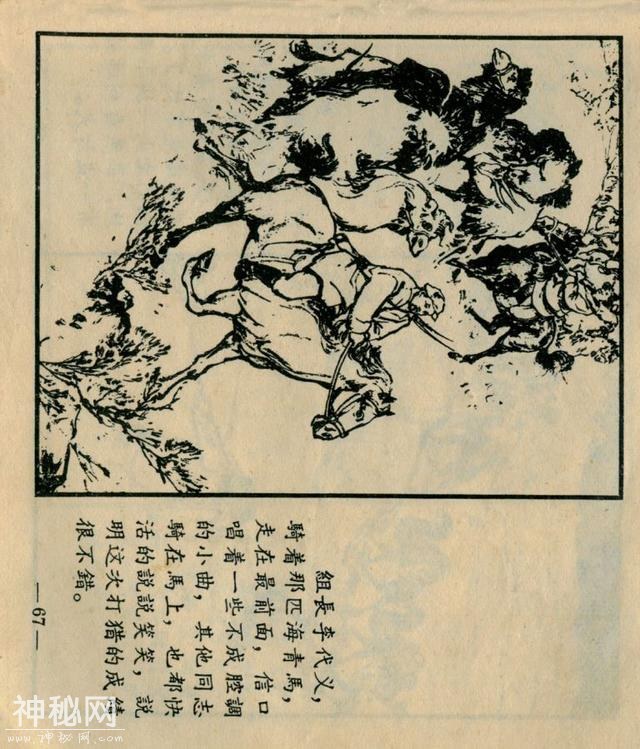 組長李代义，
騎着那匹海青馬，
走在最前面，信口
唱着一些不成腔調
的小曲，其他同志
騎在馬上，也都快
活的説説笑笑，説
明这次打猎的成績
很不錯。
—67—
神秘网
www.神秘网.com